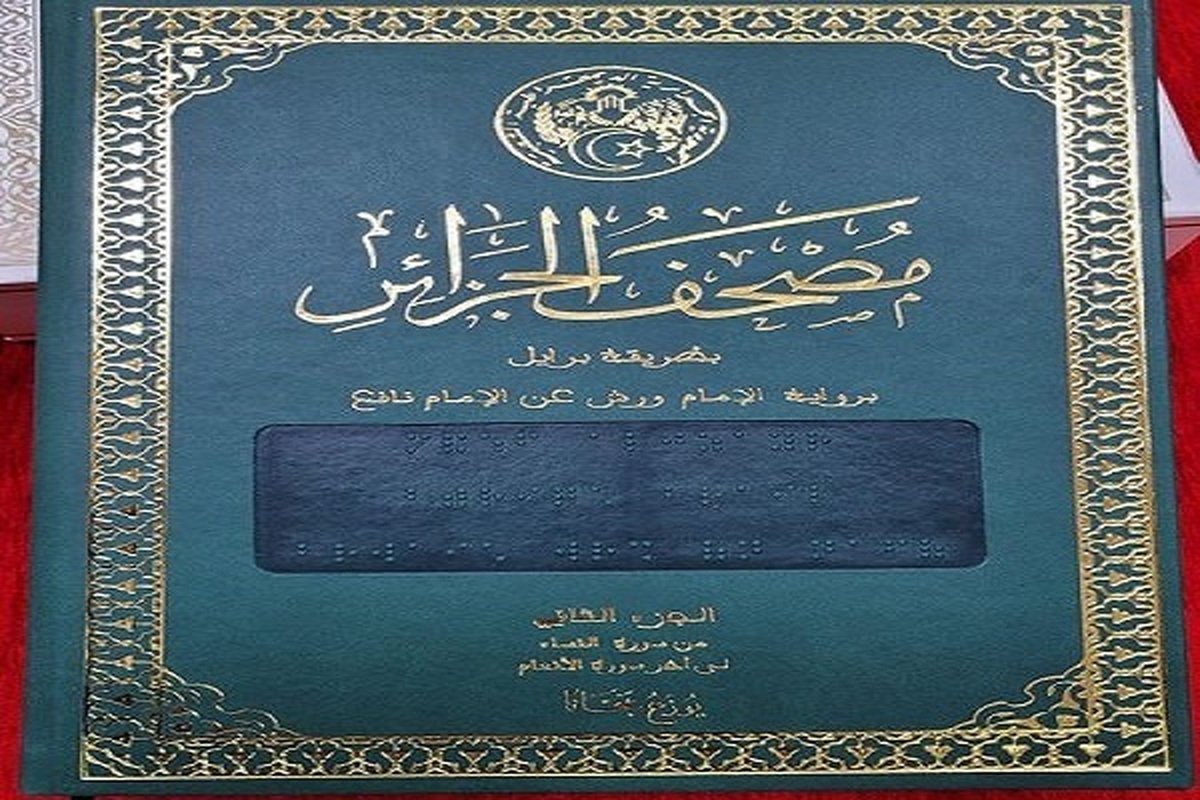 مُصْحَفُ الجَزَائِرِ
بطريقة برايل
برواية الإمام ورش عن الإمام نافع
الجزء الثاني
من سورة النساء
إلى آخر سورة الأنعام
يُوزَعُ مَجَّانًا